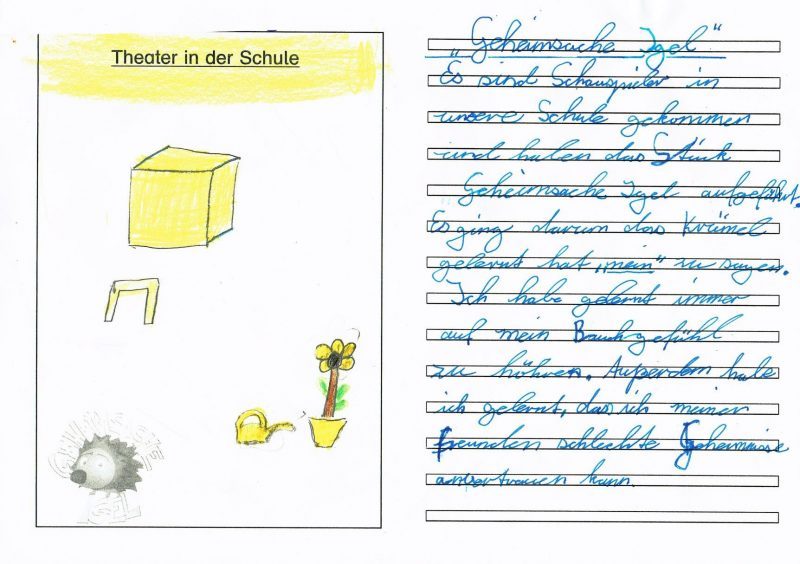 Theater in der Schule
GEHEIMSACHE
IGEL
„Geheimsache Igel“
Es sind Schauspieler in
unsere Schule gekommen
und haben das Stück
Geheimsache Igel aufgeführt.
Es ging darum das Krümel
gelernt hat „nein“ zu sagen.
Ich habe gelernt immer
auf mein Bauchgefühl
zu höhren. Außerdem habe
ich gelernt, das ich meinen
Freunden schlechte Geheimnisse
anvertrauen kann.